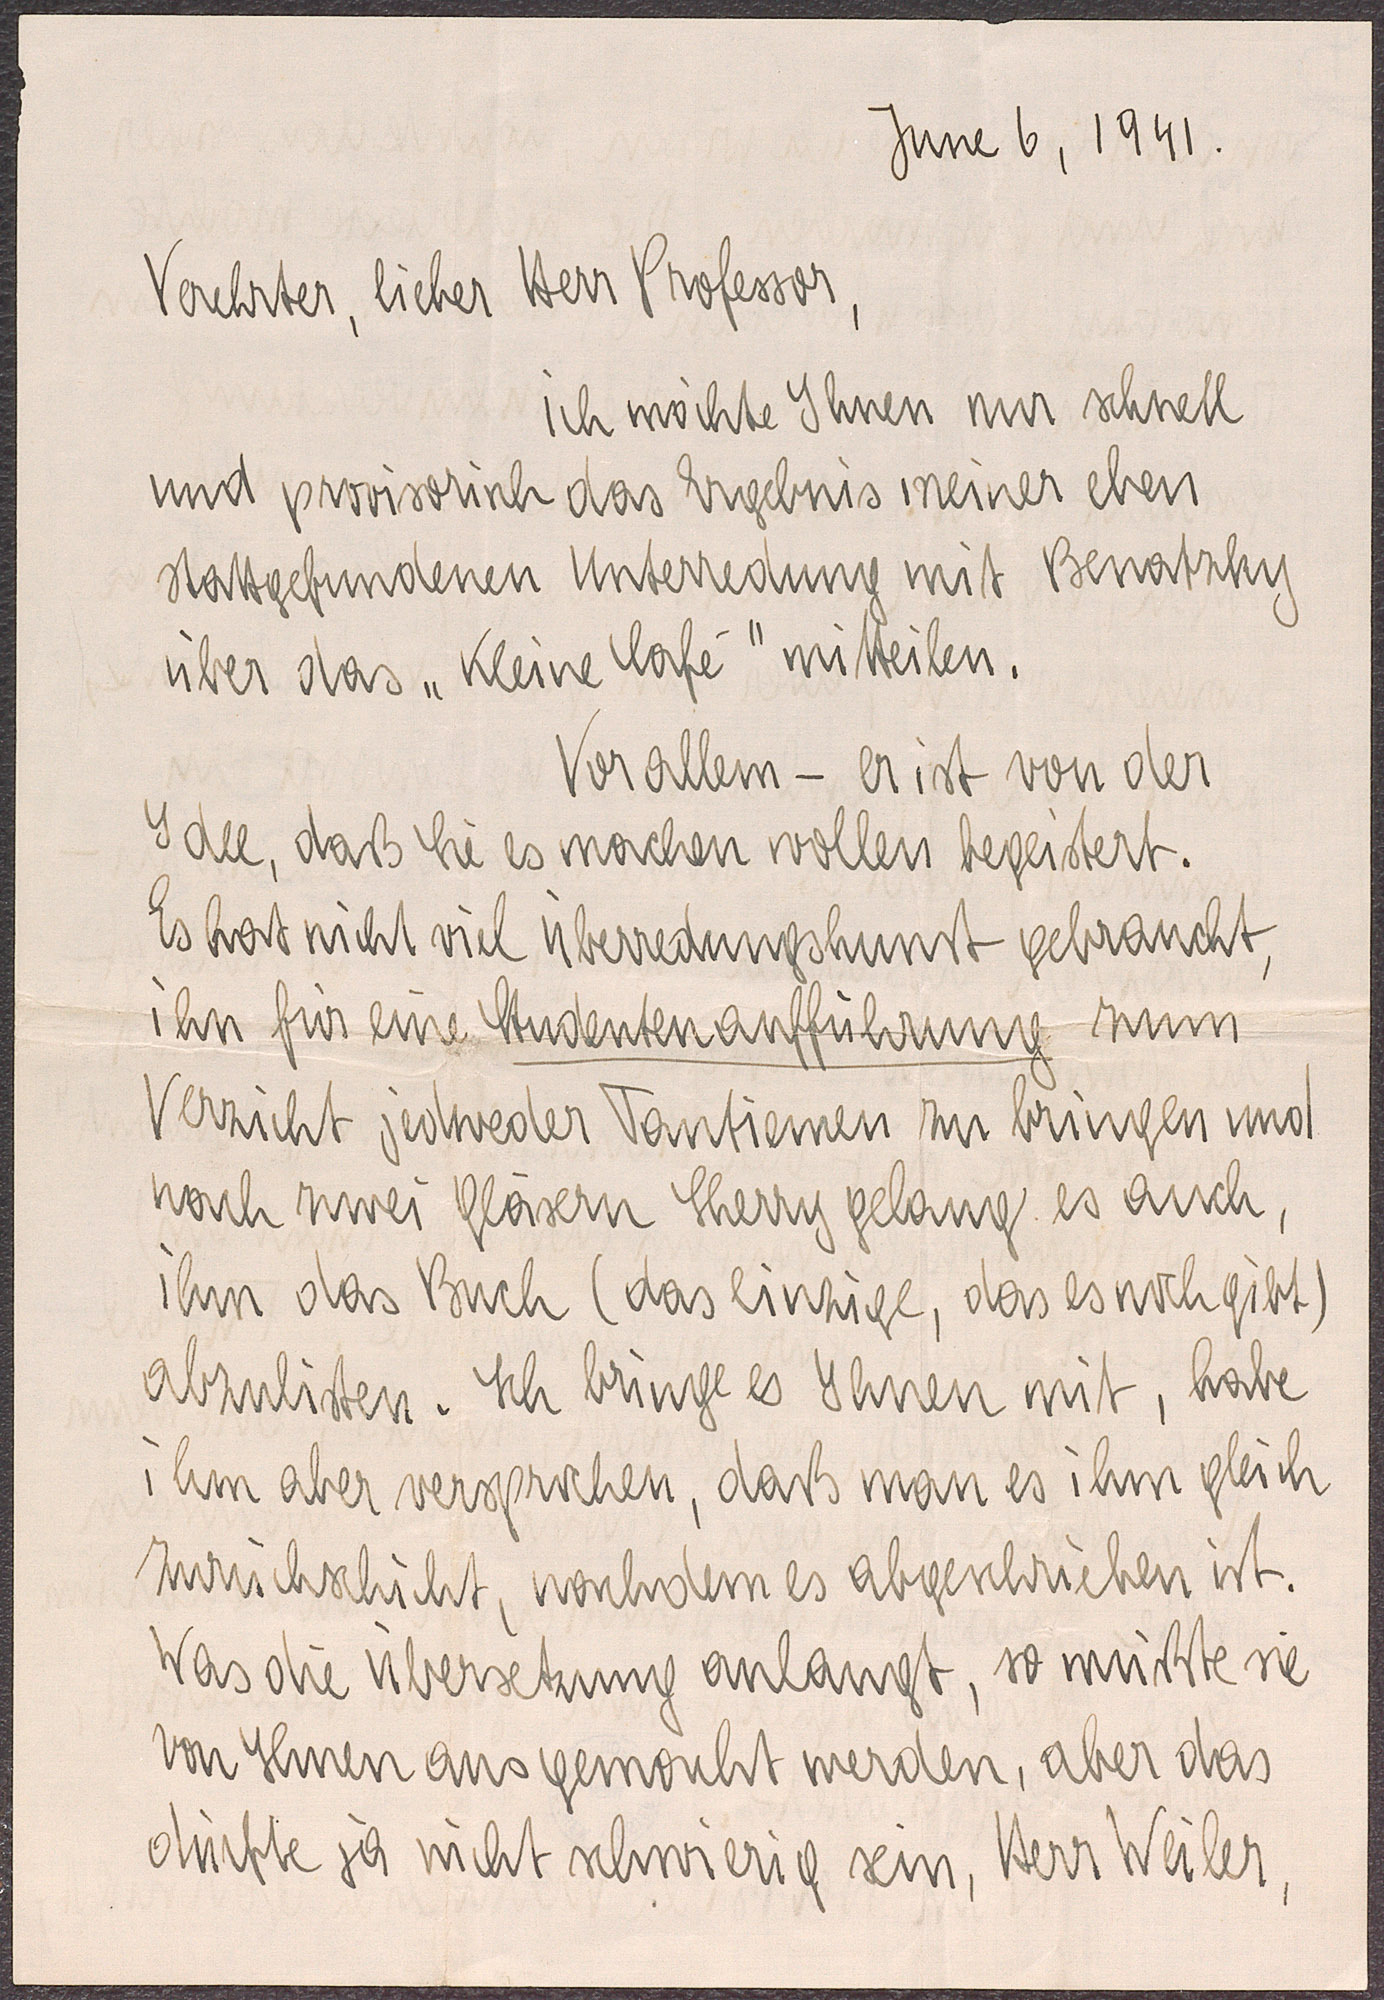 June 6, 1941.
Verehrter, lieber Herr Professor,
ich möchte Ihnen nur schnell
und provisorisch das Ergebnis meiner eben
stattgefundenen Unterredung mit Benatzky
über das „Kleine Café" mitteilen.
Vor allem – er ist von der
Idee, daß Sie es machen wollen begeistert.
Es hat nicht viel Überredungskunst gebraucht,
ihn für eine Studentenaufführung zum
Verzicht jedweder Tantiemen zu bringen und
nach zwei Gläsern Sherry gelang es auch,
ihm das Buch (das einzige, das es noch gibt)
abzulisten. Ich bringe es Ihnen mit, habe
ihm aber versprochen, daß man es ihm gleich
zurückschickt, nachdem es abgeschrieben ist.
Was die Übersetzung anlangt, so müßte sie
von Ihnen aus gemacht werden, aber das
dürfte ja nicht schwierig sein, Herr Weiler,